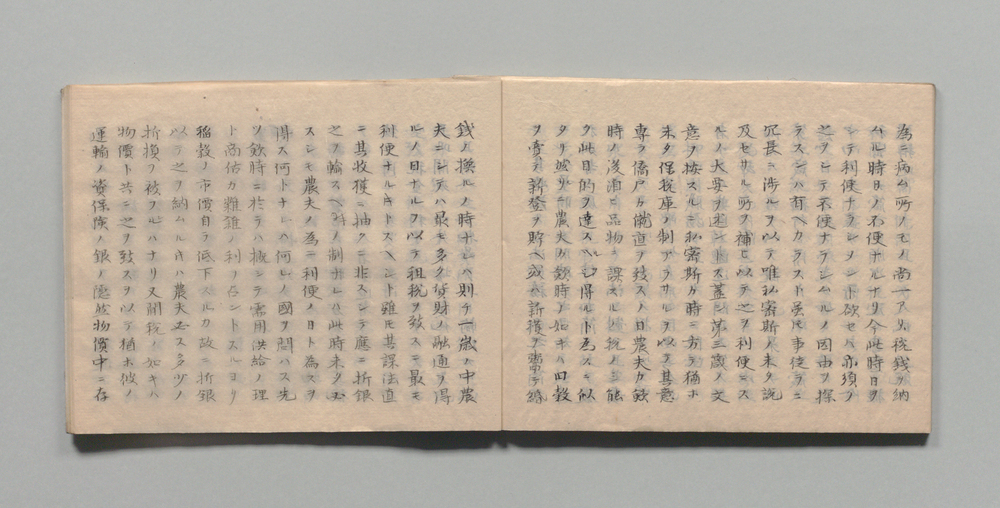 為ニ病ム所ノモノ尚一アリ税銭ヲ納
ムル時日ノ不便ナルナリ今此時日ヲ
シテ利便ナラシメント欲セバ亦須ク
之ヲシテ不便ナラシムルノ因由ヲ探
ラズンバ有ベカラズト虽モ事徒ラニ
冗長ニ渉ルヲ以テ唯私密斯ノ未タ説
及セザル所ヲ補ヒ以テ之ヲ利便ニス
ルノ大要ヲ述ントス蓋シ第三歳ノ文
意ヲ按スルニ私密斯ガ時ニ方テ猶ホ
未タ保税庫ノ制アラザルヲ以テ其意
専ラ僦戸ガ僦直ヲ致スノ日農夫ガ歛
時ノ後酒ニ品物ニ課スルノ税ノミ能
ク此日的ヲ達スベシ得ルト為スニ似
タリ故ニ農夫ガ歛時ノ如キハ田穀
ヲ賣テ新登ヲ貯ヘ或ハ新獲ヲ糶テ
銭ニ換ルノ時ナレバ則チ一歳ノ中農
夫ニシテハ最モ多ク貨財ノ融通ヲ得
ルノ日ナルヲ以テ租税ヲ致スニ最モ
利便ナルベキトスベシト雖モ其課法直
ニ其收獲ニ抽クニ非スシテ應ニ折銀
之ヲ輸スベキノ制ナレバ此時未タ必
スシモ農夫ノ為ニ利便ノ日ト為スヲ
得ス何トナレバ何レノ國ヲ問ハス先
ツ歛時ニ於テハ極シテ需用供給ノ理
ト商估ガ難誰ノ利ヲ占ントスルヨリ
稲穀ノ市價自テ低下スルガ故ニ折銀
以テ之ヲ納ムルトキハ農夫必ス多少ノ
折損ヲ被フレバナリ又關税ノ如キハ
物價ト共ニ之ヲ致スヲ以テ猶ホ彼ノ
運輸ノ資保険ノ銀ノ隠然物價中ニ存